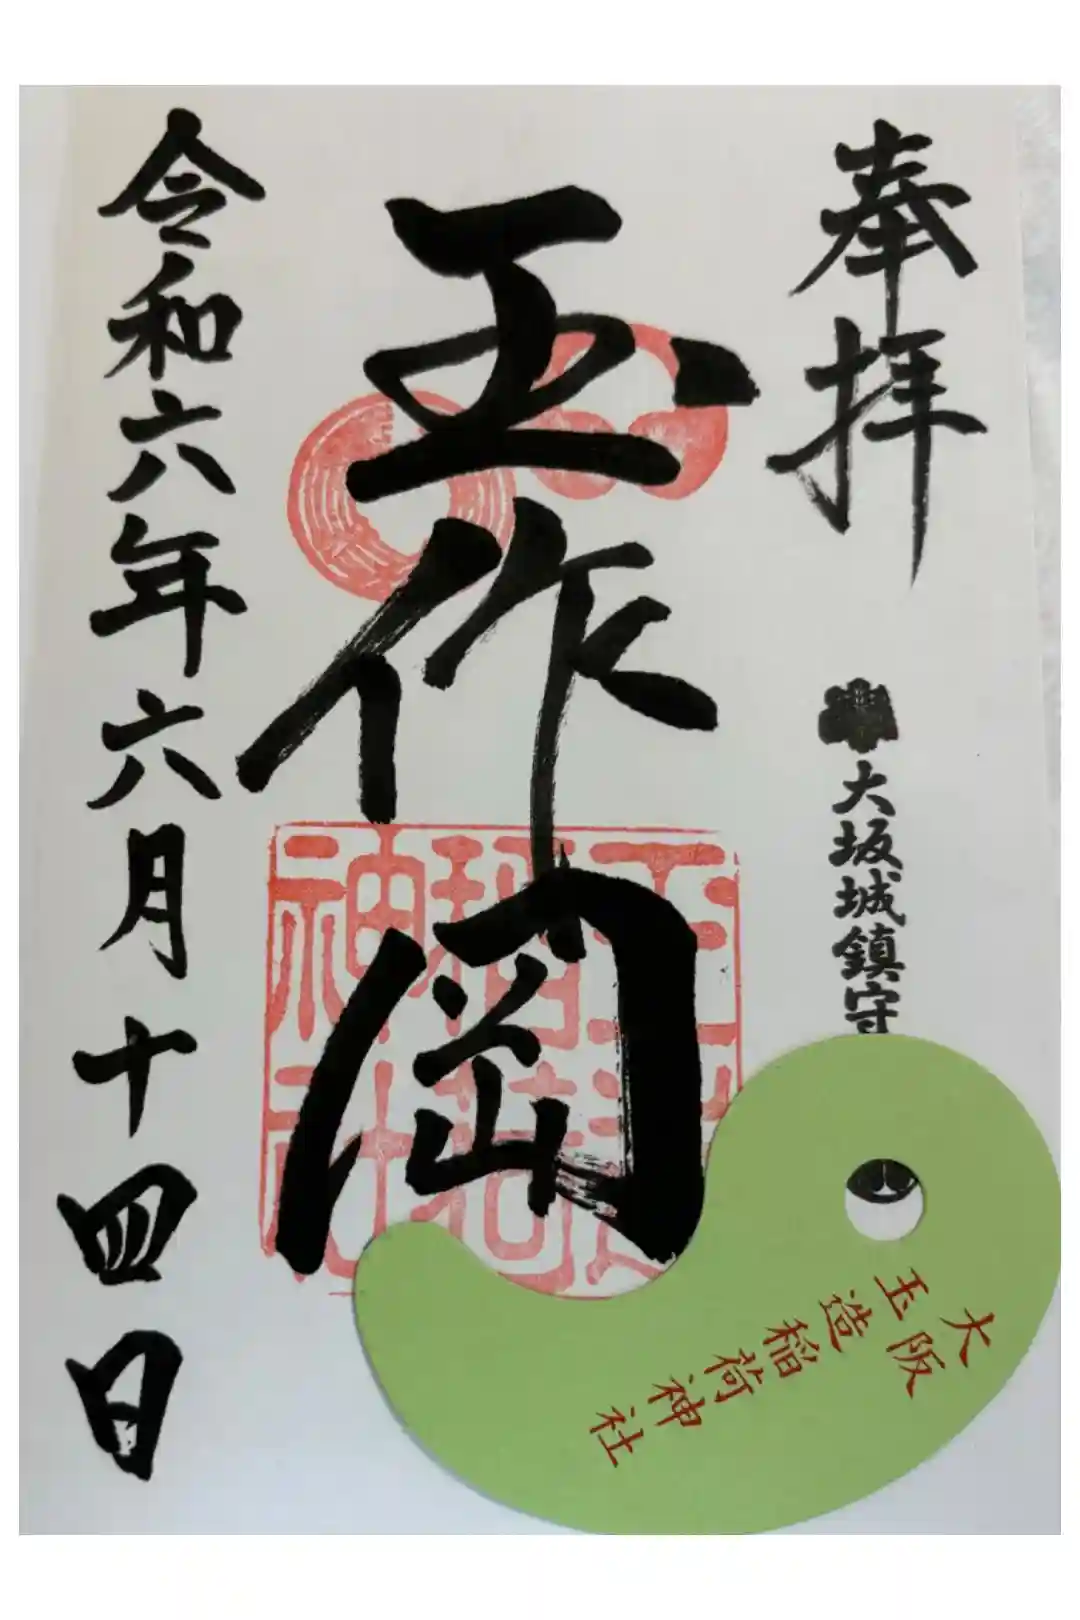 奉拝
大坂城鎮守
玉作岡
令和六年六月十四日
大阪
玉造稲荷神社